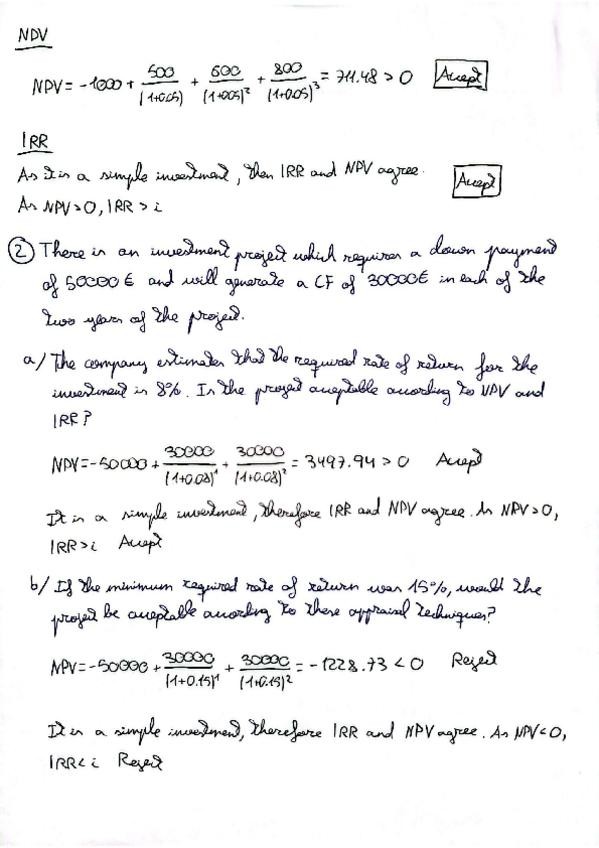 NPV
NPV = -1000 + 500/(1+0.05) + 600/(1+0.05)² + 800/(1+0.05)³ = 711.48 > 0 Accept
IRR
As it is a simple investment, then IRR and NPV agree.
As NPV>0, IRR > i Accept
② There is an investment project which requires a down payment
of 50000€ and will generate a CF of 30000€ in each of the
two years of the project.
a/ The company estimates that the required rate of return for the
investment is 8%. Is the project acceptable according to NPV and
IRR?
NPV = -50000 + 30000/(1+0.08)¹ + 30000/(1+0.08)² = 3497.94 > 0 Accept
It is a simple investment, therefore IRR and NPV agree. As NPV>0,
IRR>i Accept
b/ If the minimum required rate of return was 15%, would the
project be acceptable according to these appraisal techniques?
NPV = -50000 + 30000/(1+0.15)¹ + 30000/(1+0.15)² = -1228.73 < 0 Reject
It is a simple investment, therefore IRR and NPV agree. As NPV<0,
IRR<i Reject